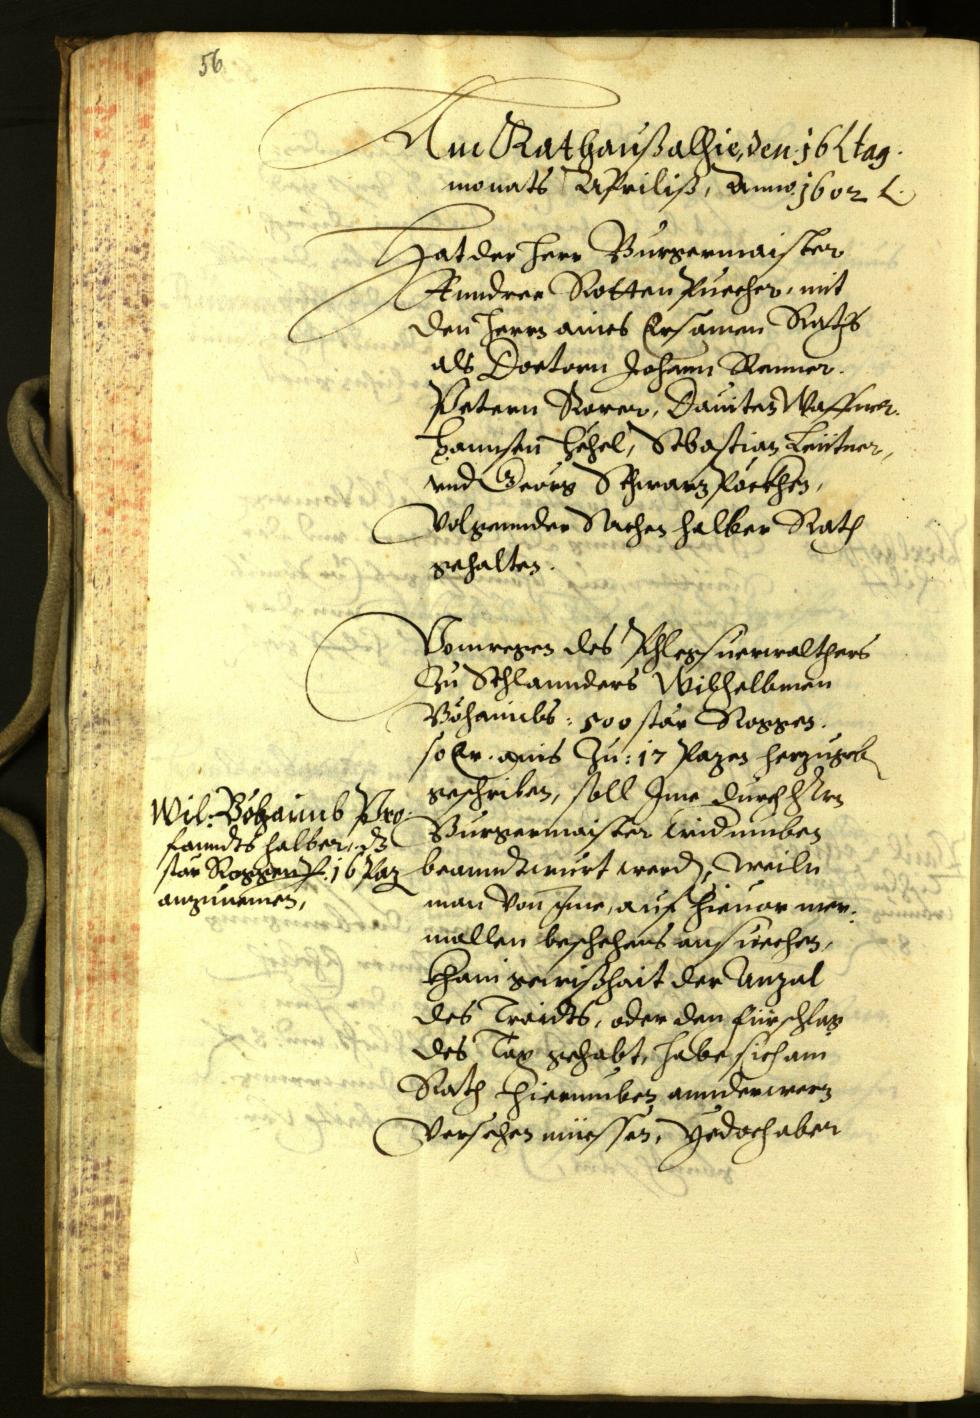 56
Am Rathauß alhie, den 16 tag
monats Apriliß, Anno. 1602
Hat der Herr Burgermaister
Anndree Rottenpuecher, mit
den herrn aines Ersamen Raths
als Doctorn Johann Renner.
Petern Rorer, Dauiten Waffner.
Hannsen Hëhel, Sebastian Leütner,
vnd Georg Schwarzpöckhen,
Volgennder Sachen halber Rath
gehalten.
Vonwegen des Phlegsuerwalthers
zu Schlannders Wilhelbmen
Böhaimbs: 500 stär Roggen.
so Er ains zu: 17 Pazen herzugeben
geschriben, soll Jme durch Hrn
Burgermaister widumben
beanndtwurt werd, weiln
man von Jme, auf hieuor mer:
mallen beschehens ansuechen,
khain gewißhait der Anzal
des Traidts, oder den fürschlag
des Tax gehabt, habe sich ain
Rath hierumben annderwerz
versehen müessen, Yedoch aber
Wil: Böhaimb Pro:
fanndts halber,
stär Roggen p. 16 Paz
anzunemen,